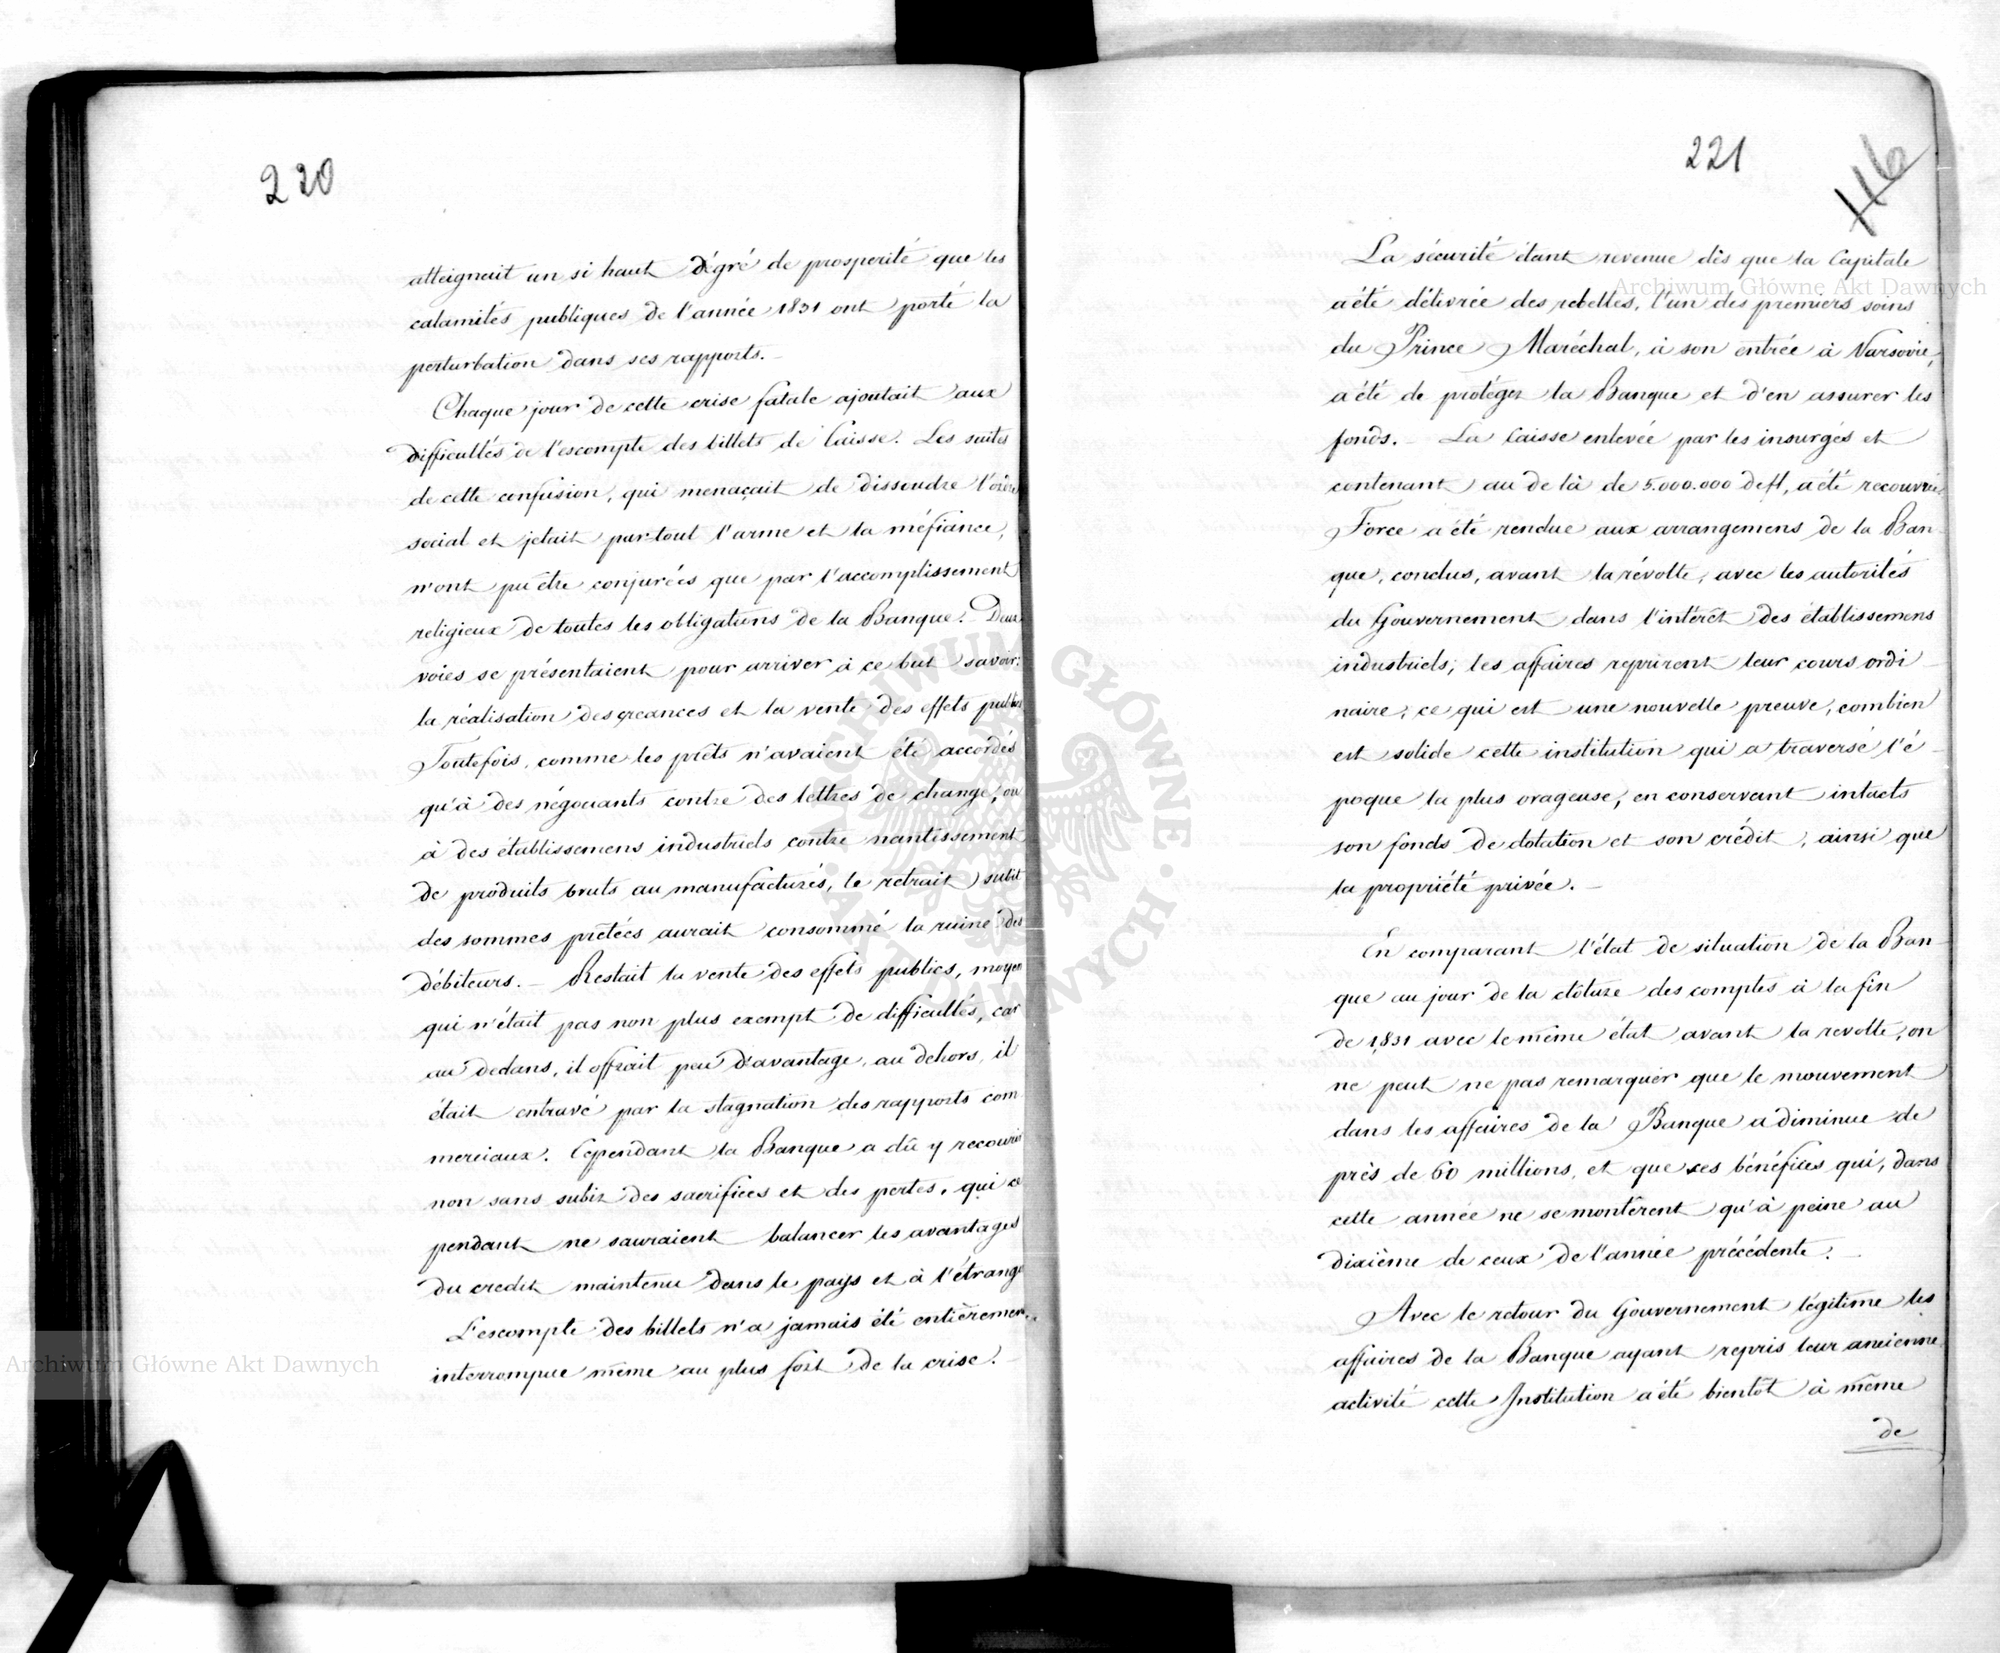 220
atteignait un si haut dégré de prosperité que les
calamités publiques de l'année 1831 ont porté la
perturbation dans ses rapports.
Chaque jour de cette crise fatale ajoutait aux
difficultés de l'escompte des billets de Caisse. Les suites
de cette confusion, qui menaçait de dissoudre l'ordre
social et jetait partout l'arme et la méfiance,
n'ont pu être conjurées que par l'accomplissement
religieux de toutes les obligations de la Banque. Deux
voies se présentaient pour arriver à ce but savoir:
la réalisation des creances et la vente des effets publics
Toutefois, comme les prêts n'avaient été accordés
qu'à des négociants contre des lettres de change, ou
à des établissemens industriels contre nantissement
de produits bruts au manufacturés, le retrait subit
des sommes prêtées aurait consommé la ruine des
débiteurs. – Restait la vente des effets publics, moyen
qui n'était pas non plus exempt de difficultés, car
au dedans, il offrait peu d'avantage, au dehors, il
était entravé par la stagnation des rapports com
merciaux. Cependant la Banque a dû y recourir
non sans subir des sacrifices et des pertes, qui ce
pendant ne sauraient balancer les avantages
du credit maintenu dans le pays et à l'étrange
L'escompte des billets n'a jamais été entièrement
interrompue même au plus fort de la crise. –
221
116
La sécurité étant revenue dès que la Capitale
a été délivrée des rebelles, l'un des premiers soins
du Prince Maréchal, à son entrée à Varsovie,
a été de protéger la Banque et d'en assurer les
fonds. – La Caisse enlevée par les insurgés et
contenant au de là de 5.000.000 de fl, a été recouvrée
Force a été rendue aux arrangemens de la Ban
que, conclus, avant la révolte, avec les autorités
du Gouvernement dans l'intérêt des établissemens
industriels; les affaires reprirent leur cours ordi
naire, ce qui est une nouvelle preuve, combien
est solide cette institution qui a traversé l'é
poque la plus orageuse, en conservant intacts
son fonds de dotation et son crédit, ainsi que
la propriété privée. –
En comparant l'état de situation de la Ban
que au jour de la clôture des comptes à la fin
de 1831 avec le même état avant la revolte, on
ne peut ne pas remarquer que le mouvement
dans les affaires de la Banque a diminué de
près de 60 millions, et que ses bénéfices qui, dans
cette année ne se montèrent qu'à peine au
dixième de ceux de l'année précédente. –
Avec le retour du Gouvernement légitime les
affaires de la Banque ayant repris leur ancienne
activité cette Institution a été bientôt à même
de
Archiwum Główne Akt Dawnych
Archiwum Główne Akt Dawnych
ARCHIWUM GŁÓWNE · AKT DAWNYCH ·